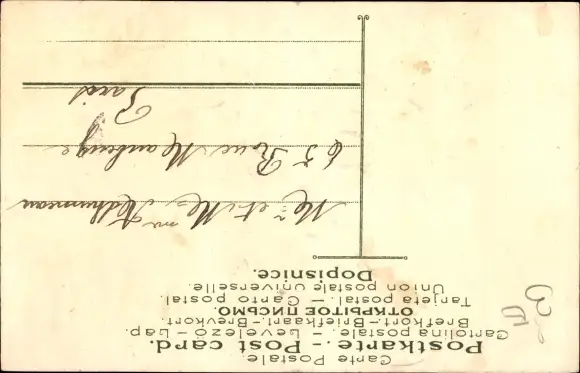 Carte Postale.
Postkarte. - Post card.
Cartolina postale. - Levelező - Lap.
Brefkort.-Briefkaart.-Brevkort.
ОТКРЫТОЕ ПИСЬМО.
Tarjeta postal. - Carto postal.
Union postale universelle.
Dopisnice.
Mr et Me
65 Rue Maubeuge
Paris